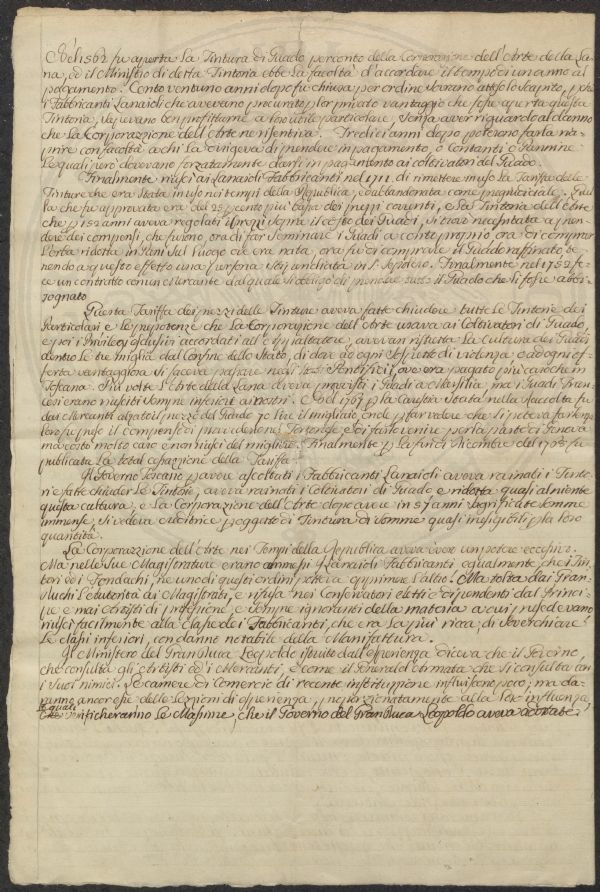 Nel 1562 fu aperta la Tintura di Guado per conto della Corporazione dell'Arte della La-
na, ed il Ministro di detta Tintoria ebbe la facoltà d'accordare il tempo di un anno al
pagamento. Cento ventuno anni dopo fu chiusa per ordine Sovrano atteso lo scapito, e perchè
i Fabbricanti Lanaioli che avevano procurato per lor privato vantaggio che fosse aperta questa
Tintoria, sapevano ben profittarne a loro utile particolare, senza aver riguardo al danno
che la Corporazzione dell'Arte ne risentiva. Tredici anni dopo poterono farla ria-
prire con facoltà a chi la dirigeva di prendere in pagamento, o Contanti, o Pannine
le quali però dovevano forzatamente darsi in pagamento ai coltivatori del Guado.
Finalmente riuscì ai Lanaioli Fabbricanti nel 1711. di rimettere in uso la Tariffa delle
Tinture che era stata in uso nei tempi della Repubblica, ed abbandonata come pregiudiciale. Quel-
la che fu approvata era del 25 per cento più bassa dei prezzi correnti, e la Tintoria dell'Arte
che per 152 anni aveva regolati i prezzi sopra il costo dei Guadi, si trovò necessitata a pren-
dere dei compensi, che furono, ora di far seminare i Guadi a conto proprio, ora di comprar
l'erba ridotta in Pani sul luogo ove era nata, ora fu di comprare il Guado raffinato te-
nendo a questo effetto una Persona stipendiata in S. Sepolcro. Finalmente nel 1752 fe-
ce un contratto con un Mercante dal quale si obbligò di prendere tutto il Guado che gli fosse abbi-
sognato
Questa Tariffa dei prezzi delle Tinture aveva fatte chiudere tutte le Tintorie dei
Particolari e le prepotenze che la Corporazione dell'Arte usava ai Coltivatori di Guado,
e poi i Privilegj esclusivi accordati all'Appaltatore, avevan ristretta la Cultura dei Guadi
dentro le tre miglia dal Confine dello Stato, di dove ad ogni sospetto di violenza, e ad ogni of-
ferta vantaggiosa si faceva passare negli Stati Pontificj, ove era pagato più caro che in
Toscana. Più volte l'Arte della Lana aveva provvisti i Guadi a Marsilia, ma i Guadi Fran-
cesi erano riusciti sempre inferiori ai nostri. Nel 1767 per la Carestia stata nella Raccolta fu
dai Mercanti alzato il prezzo del Guado 70 lire il migliaio, onde per far vedere che si poteva far senza
loro fu preso il compenso di provvederne in Tortonese e di farlo venire per la parte di Genova
ma costò molto caro e non riuscì del migliore. Finalmente per la fin di Dicembre del 1768 fu
pubblicata la total cassazione della Tariffa.
Il Governo Toscano per avere ascoltati i Fabbricanti Lanaioli aveva rovinati i Tinto-
ri e fatte chiuder le Tintorie, aveva rovinati i Coltivatori di Guado e ridotta quasi al niente
questa cultura, e la Corporazione dell'Arte dopo avere in 57 anni sagrificate somme
immense, si vedeva creditrice per oggetto di Tintura di somme quasi inesigibili per la loro
quantità.
La Corporazzione dell'Arte nei Tempi della Repubblica aveva avere un potere eccessivo.
Ma nelle sue Magistrature erano ammessi gl'Lanaioli Fabbricanti egualmente che i Tin-
tori ed i Fondachi, ne uno di questi ordini poteva opprimere l'altro. Ma tolta dai Gran-
Duchi l'autorità ai Magistrati, e rifusa nei Conservatori eletti e dipendenti dal Princi-
pe e mai Artisti di professione, e sempre ignoranti della materia a cui presedevano
riuscì facilmente alla Classe dei Fabbricanti, che era la più ricca, di soverchiare
le classi inferiori, con danno notabile della Manifattura.
Il Ministero del Granduca Leopoldo istruito dall'esperienza diceva che il Governo,
che consulta gli Artisti ed i Mercanti, è come il General d'Armata che si consulta con
i suoi nimici. Le Camere di Comercio di recente instituzione influiscono poco; ma da-
ranno ancor esse delle lezioni di esperienza, proporzionatamente alla loro influenza,
le quali
che giustificheranno le Massime, che il Governo del Gran Duca Leopoldo aveva adottate.